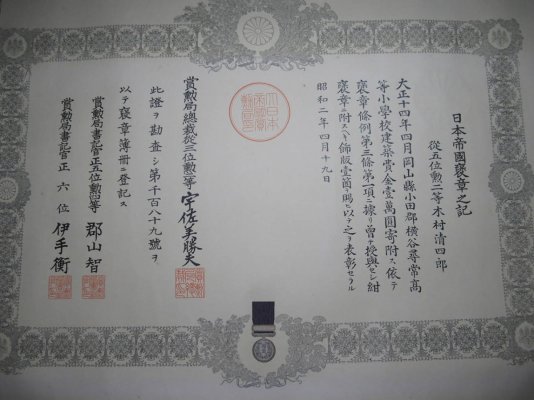 日本帝國褒章之記
從五位勲二等木村清四郎
大正十四年四月岡山縣小田郡横谷尋常高
等小學校建築費金壹萬圓寄附ス依テ
褒章條例第三條第一項ニ據リ曽テ授與セシ紺
褒章ニ附スヘキ飾版壹箇ヲ賜ヒ以テ之ヲ表彰セラル
昭和二年四月十九日
大日本
帝國賞
勲局印
賞勲局總裁從三位勲一等宇佐美勝夫
此證ヲ勘査シ第千百八十九號ヲ
以テ褒章簿冊ニ登記ス
賞勲局書記官正五位勲四等郡山智
賞勲局書記官正六位伊手衡